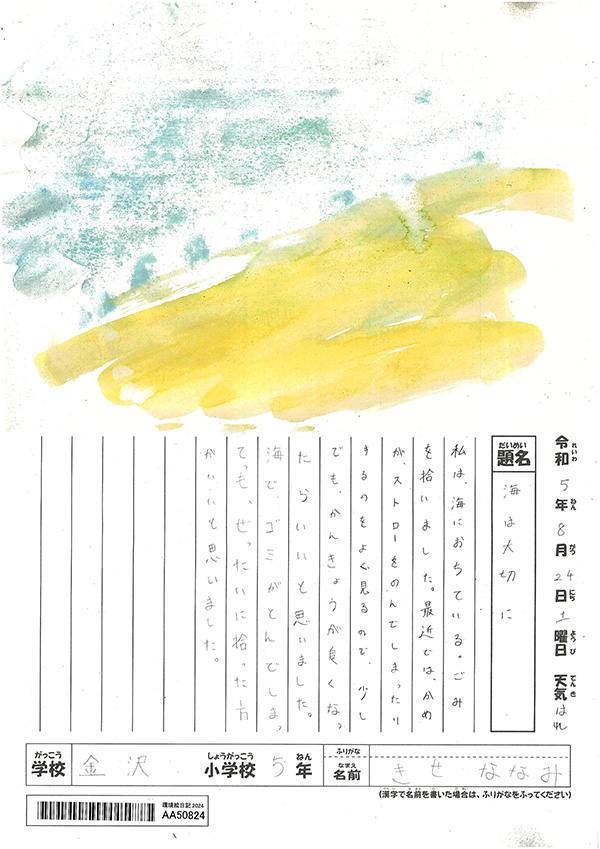 令和5年8月24日土曜日 天気はれ
れいわ ねん がつ にち ようび てんき
だいめい
題名
海は大切に
私は、海におちている。ごみ
を拾いました。最近では、かめ
が、ストローをのんでしまったり
するのをよく見るので、少し
でも、かんきょうが良くなっ
たらいいと思いました。
海で、ゴミがとんでしまっ
ても、ぜったいに拾った方
がいいと思いました。
がっこう
学校
金沢
しょうがっこう ねん
小学校 5年
ふりがな
なまえ
名前
きせ ななみ
(漢字で名前を書いた場合は、ふりがなをふってください)
環境絵日記2024
AA50824